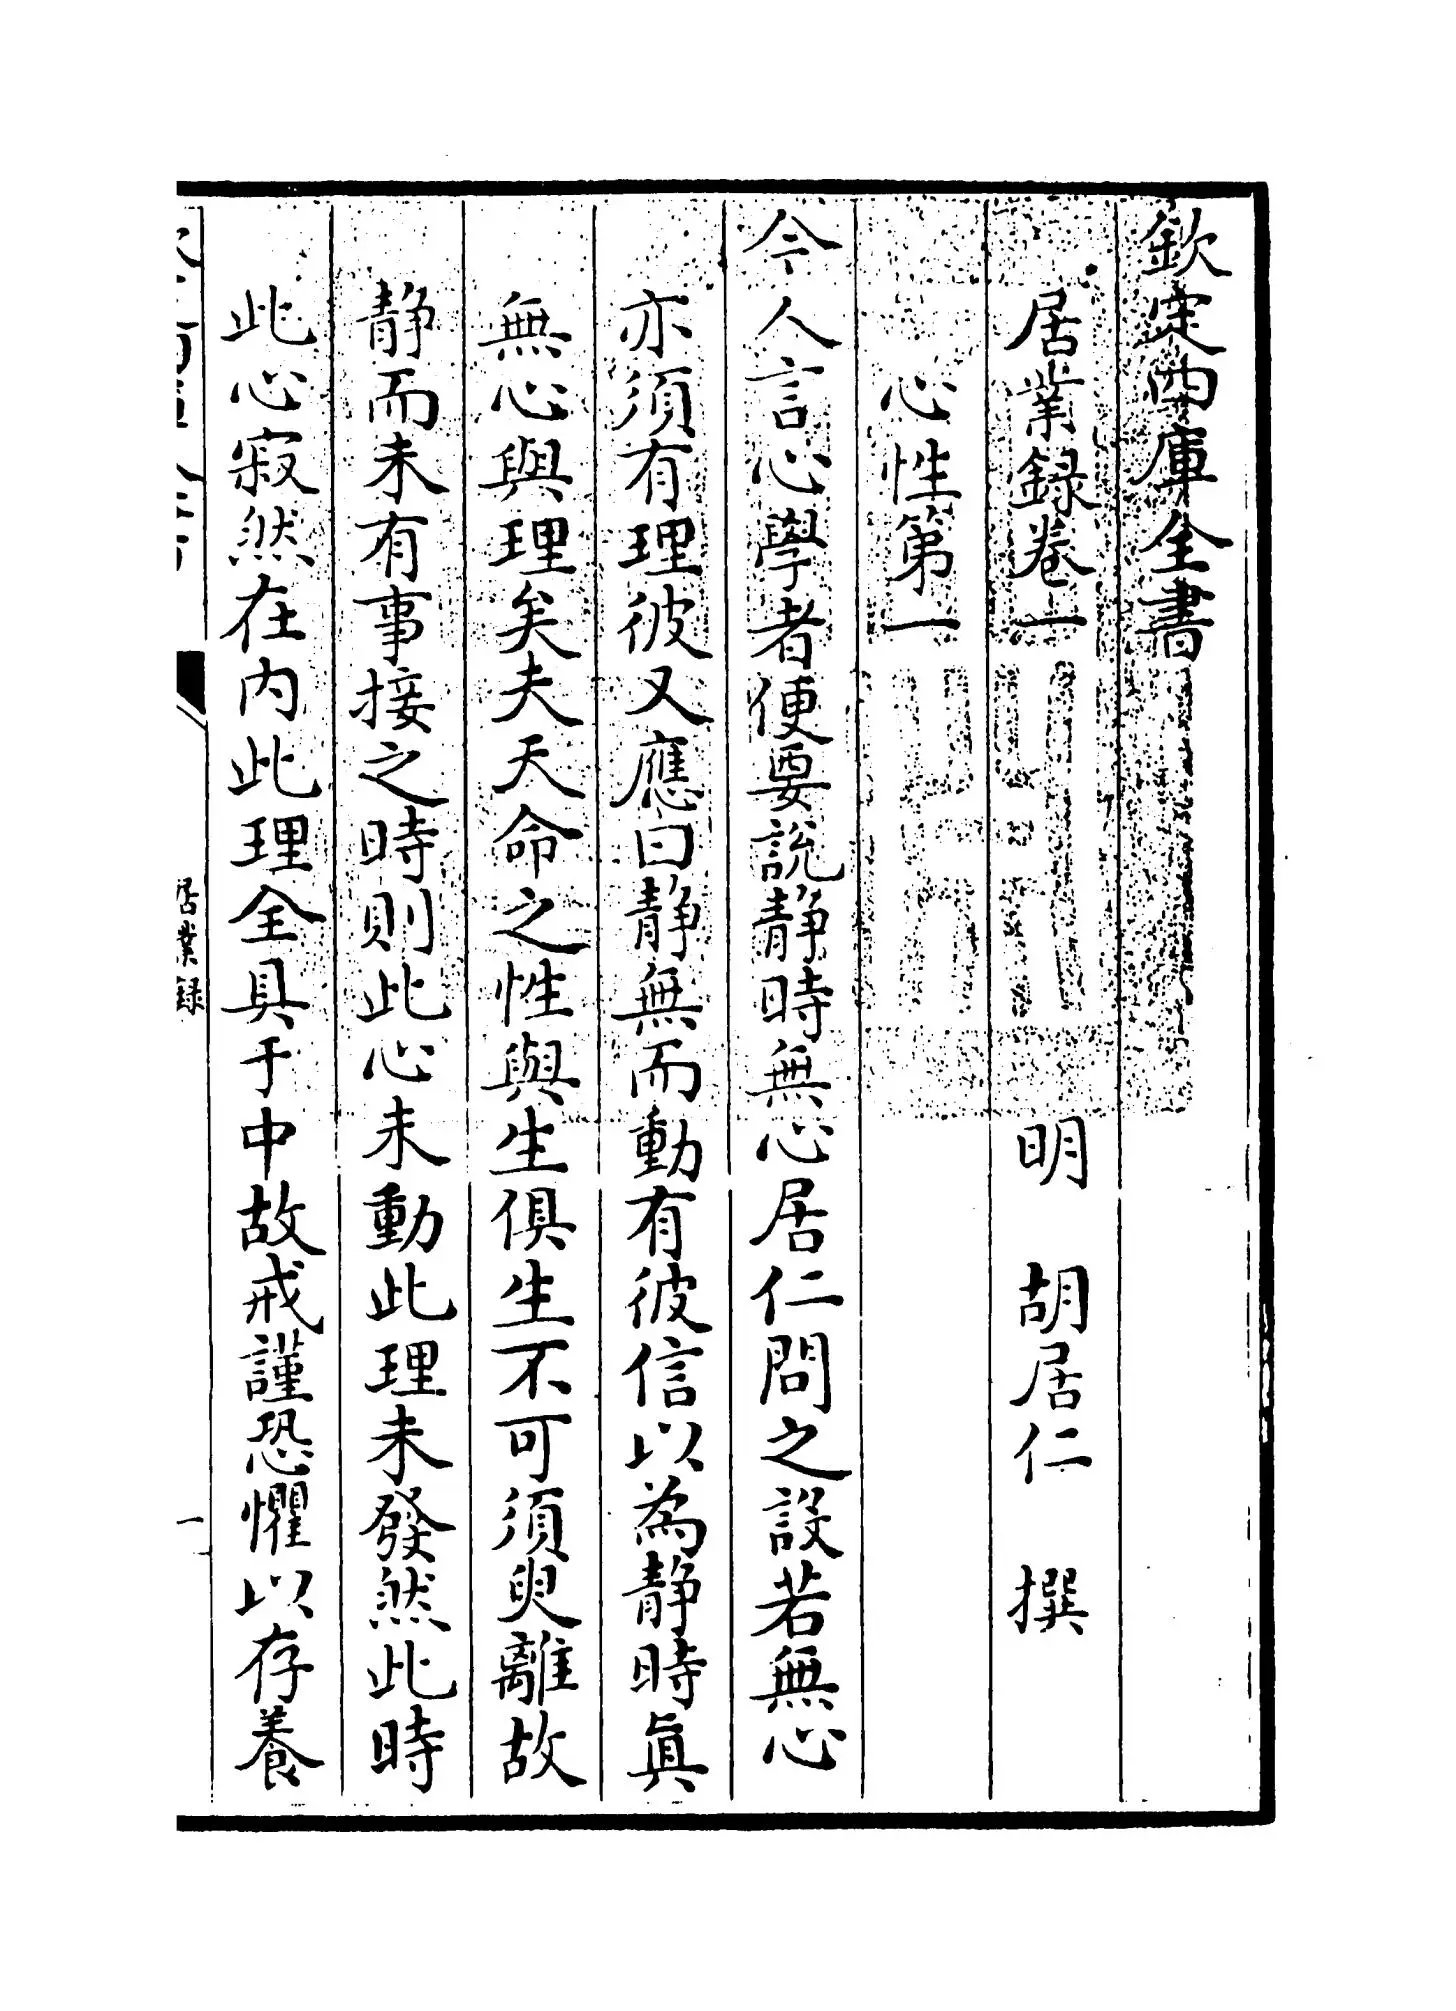 欽定四庫全書
居業録卷一　明　胡居仁　撰
心性第一
今人言心學者便要說静時無心居仁問之設若無心
亦須有理彼又應曰静無而動有彼信以為静時眞
無心與理矣夫天命之性與生俱生不可須臾離故
静而未有事接之時則此心未動此理未發然此時
此心寂然在内此理全具于中故戒謹恐懼以存養
居業録
一